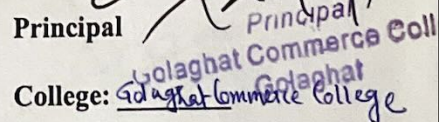 Principal
Principal
Golaghat Commerce Coll
Golaghat
College: Golaghat Commerce College